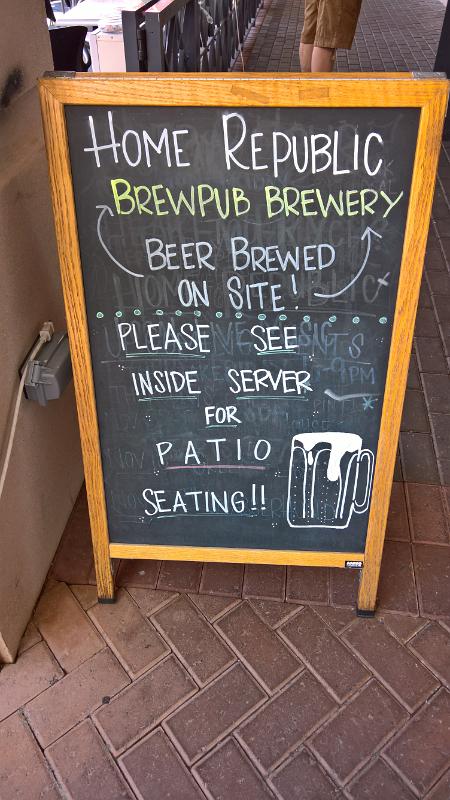 HOME REPUBLIC
BREWPUB BREWERY
BEER BREWED
ON SITE!
PLEASE SEE
INSIDE SERVER
FOR
PATIO
SEATING!!